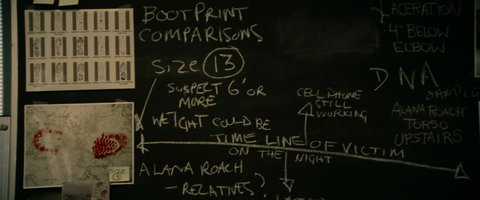 BOOTPRINT
COMPARISONS
SIZE 13
SUSPECT 6' OR
MORE
WEIGHT COULD BE
CELLPHONE
STILL
WORKING
TIME LINE OF VICTIM
ON THE NIGHT
ALANA ROACH
- RELATIVES?
LACERATION
4" BELOW
ELBOW
DNA
SAMPLE
ALANA ROACH
TORSO
UPSTAIRS
SIZE
13